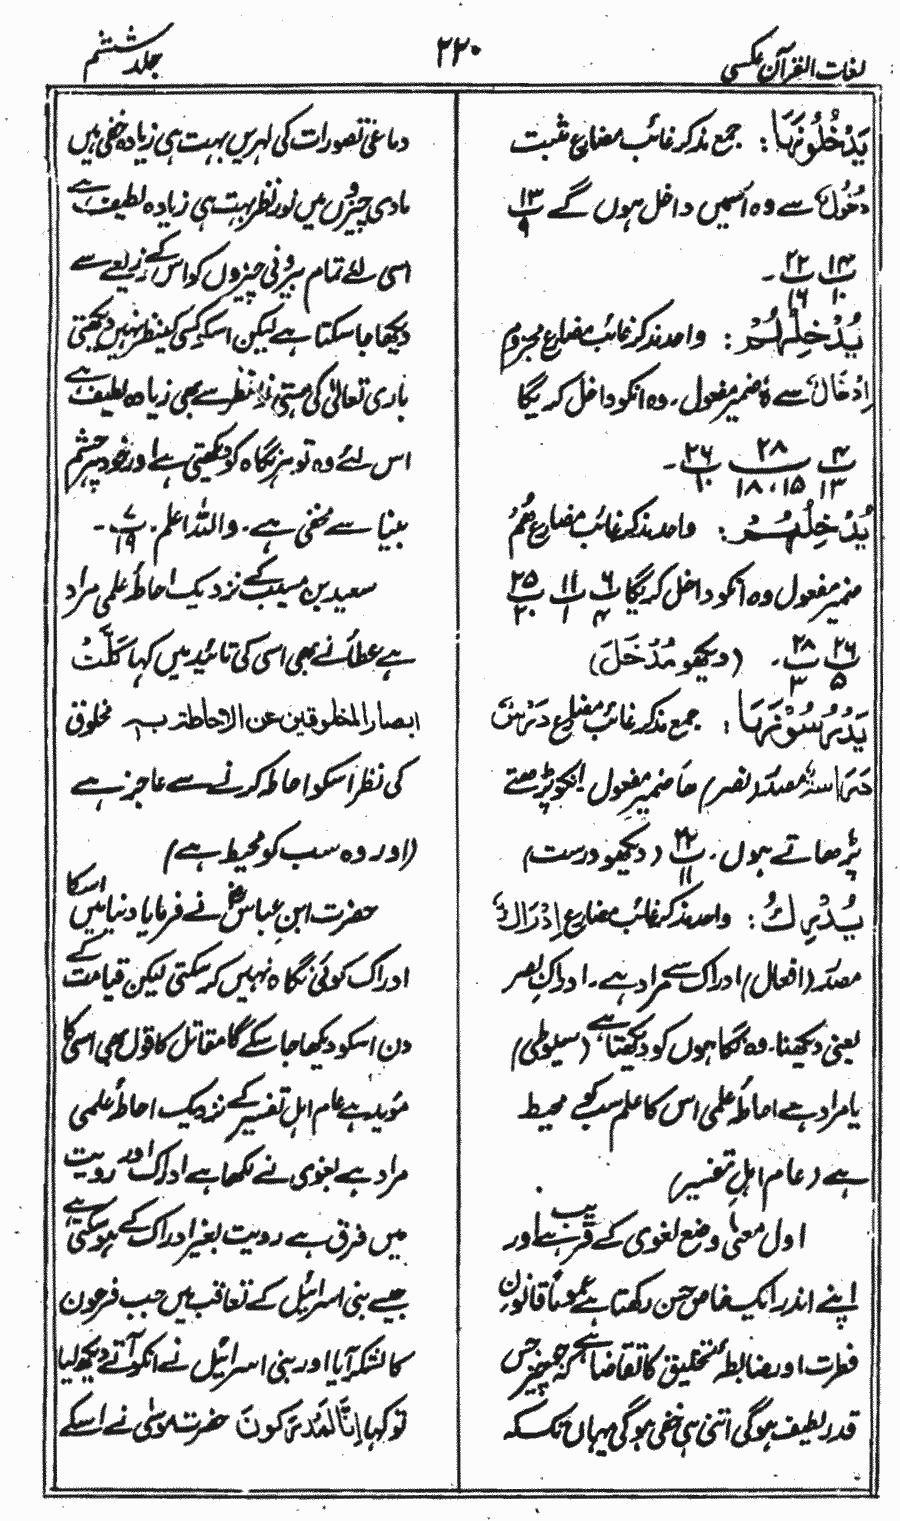 لغات القرآن عکسی
۲۲۰
جلد ششم
یَدْخُلُوْنَہَا: جمع مذکر غائب مضارع مثبت
دُخُوْل سے وہ اُسمیں داخل ہوں گے ۱۳/۹
۱۴/۱۰ ۲۲/۱۶ -
یُدْخِلْہُمْ: واحد مذکر غائب مضارع مجزوم
اِدْخَال سے ہُمْ ضمیر مفعول۔ وہ انکو داخل کریگا
۴/۱۳ ۲۸/۱۵،۱۸ ۲۶/۱۰ -
یُدْخِلُہُمْ: واحد مذکر غائب مضارع ھُمْ
ضمیر مفعول وہ انکو داخل کریگا ۶/۴ ۱۱/۱ ۲۵/۲۰
۲۶/۵ ۲۸/۳ - (دیکھو مُدْخَلَ)
یَدْرُسُوْنَہَا: جمع مذکر غائب مضارع دَرْسٌ
دِرَاسَۃٌ مصدر (نصر) ھَا ضمیر مفعول انکو پڑھتے
پڑھاتے ہوں۔ ۲۲/۱۱ (دیکھو درست)
یُدْرِكُ: واحد مذکر غائب مضارع اِدْرَاكٌ
مصدر (افعال) ادراک سے مراد ہے۔ ادراکِ بصر
یعنی دیکھنا۔ وہ نگاہوں کو دیکھتا ہے (سیوطی)
یا مراد ہے احاطۂ علمی اس کا علم سب کو محیط
ہے (عام اہل تفسیر)
اول معنی وضع لغوی کے قریب ہے اور
اپنے اندر ایک خاص حسن رکھتا ہے عموماً قانونِ
فطرت اور ضابطۂ تخلیق کا تقاضا ہے کہ جو چیز جس
قدر لطیف ہوگی اتنی ہی خفی ہوگی یہاں تک کہ
دماغی تصورات کی لہریں بہت ہی زیادہ خفی ہیں
مادی چیزوں میں نورِ نظر بہت ہی زیادہ لطیف ہے
اسی لئے تمام بیرونی چیزوں کو اس کے ذریعے سے
دیکھا جا سکتا ہے لیکن اسکو کسی کی نظر نہیں دیکھتی
باری تعالیٰ کی ہستی نظر سے بھی زیادہ لطیف ہے
اس لئے وہ تو ہر نگاہ کو دیکھتی ہے اور خود ہر چشم
بینا سے مخفی ہے۔ واللہ اعلم۔ ۷/۱۹ -
سعید بن مسیب کے نزدیک احاطۂ علمی مراد
ہے عطاء نے بھی اسی کی تائید میں کہا کَلَّتْ
ابصار المخلوقین عن الاحاطۃ بہ مخلوق
کی نظر اسکو احاطہ کرنے سے عاجز ہے
(اور وہ سب کو محیط ہے)
حضرت ابن عباسؓ نے فرمایا دنیا میں اسکا
ادراک کوئی نگاہ نہیں کر سکتی لیکن قیامت کے
دن اسکو دیکھا جا سکے گا مقاتل کا قول بھی اسی کا
مؤید ہے عام اہل تفسیر کے نزدیک احاطۂ علمی
مراد ہے بغوی نے لکھا ہے ادراک اور رویت
میں فرق ہے رویت بغیر ادراک کے ہو سکتی ہے
جیسے بنی اسرائیل کے تعاقب میں جب فرعون
کا لشکر آیا اور بنی اسرائیل نے انکو آتے دیکھ لیا
تو کہا اِنَّا لَمُدْرَکُوْنَ حضرت موسیٰ نے اسکے